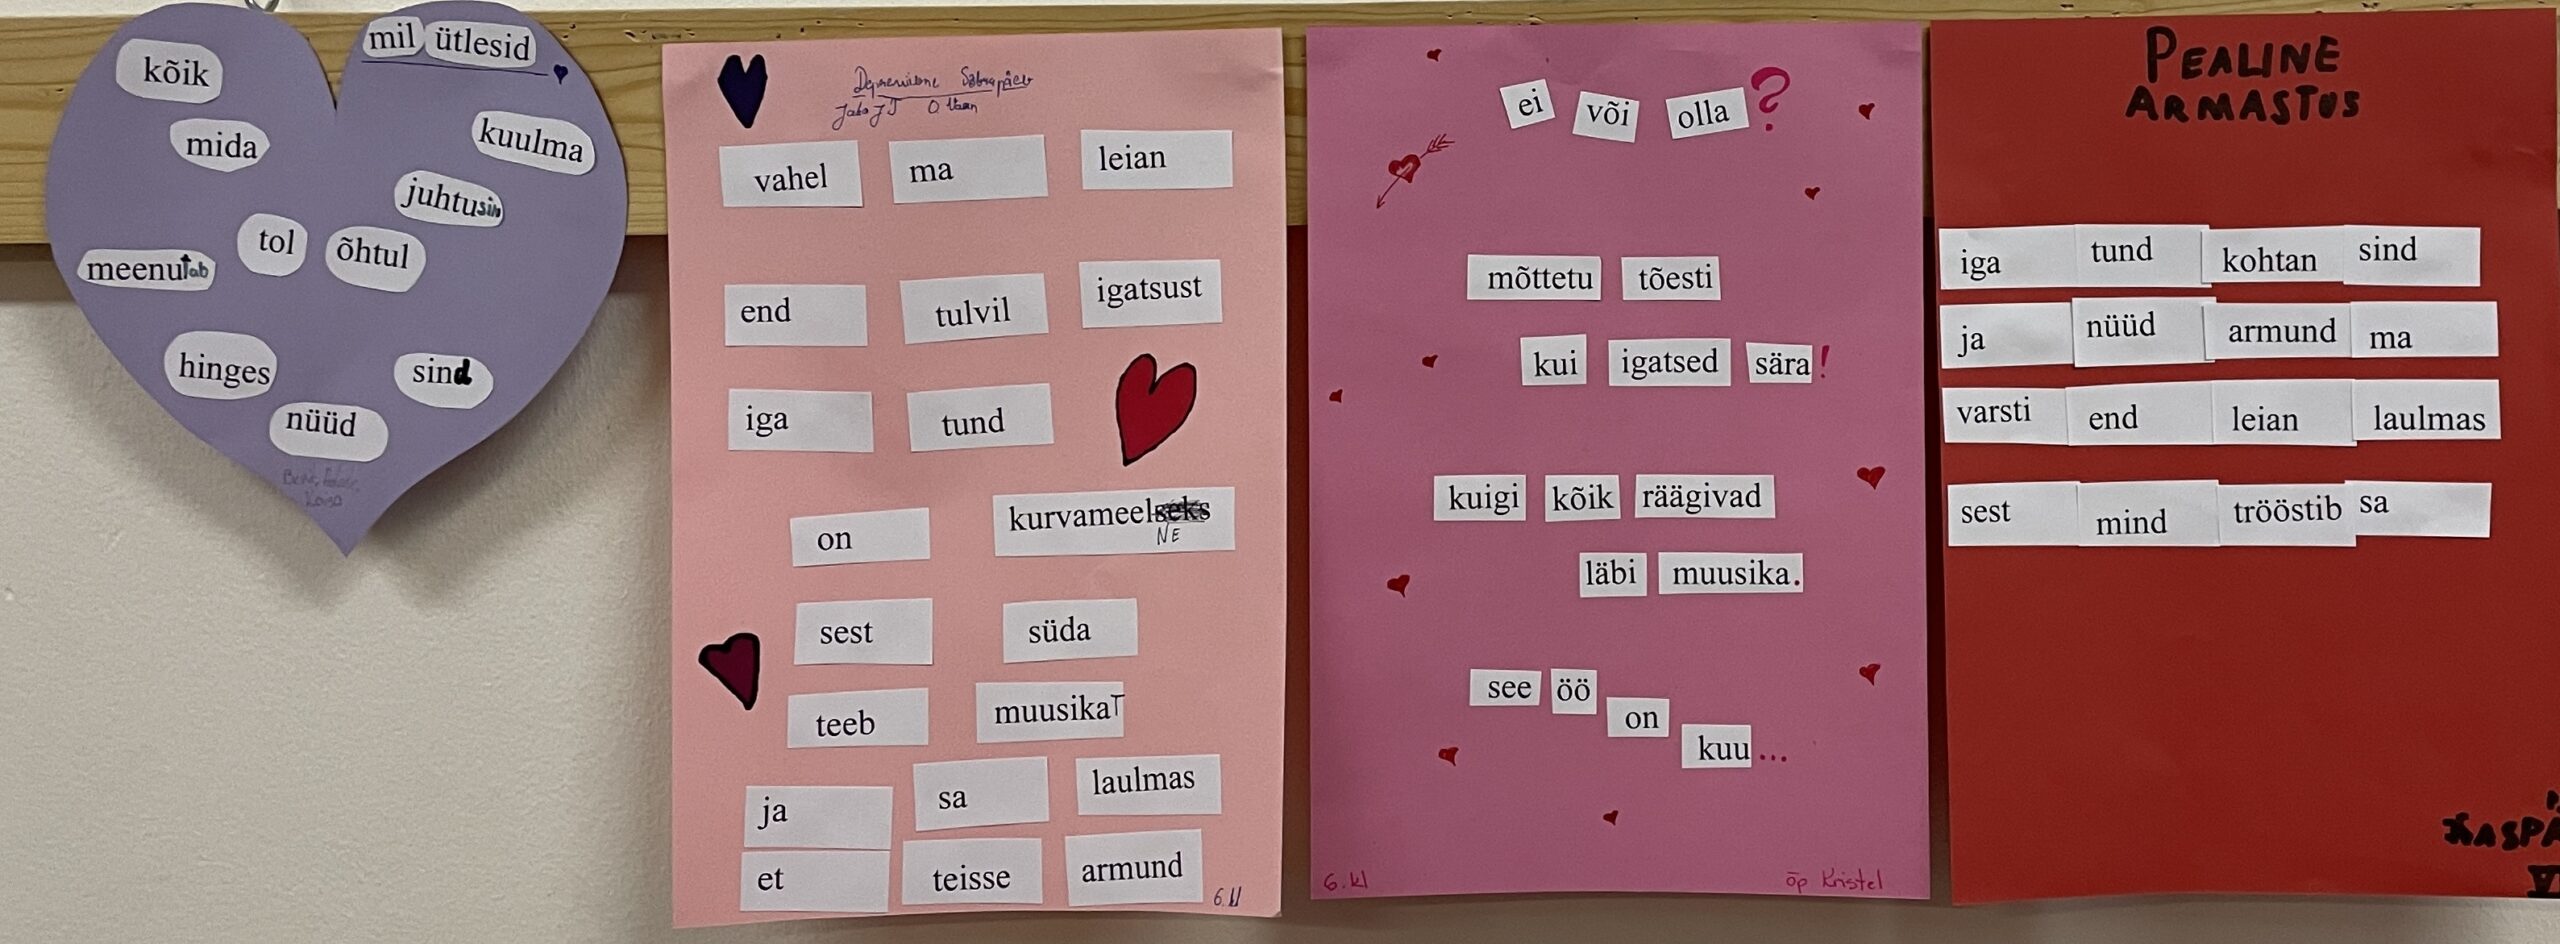 mil ütlesid
kõik
mida
kuulma
juhtusin
tol õhtul
meenutab
hinges
sind
nüüd
vahel ma leian
end tulvil igatsust
iga tund
on kurvameelne
sest süda
teeb muusikaT
ja sa laulmas
et teisse armund
6.kl
ei või olla?
mõttetu tõesti
kui igatsed sära!
kuigi kõik räägivad
läbi muusika.
see öö on kuu...
6.kl
õp Kristel
PEALINE
ARMASTUS
iga tund kohtan sind
ja nüüd armund ma
varsti end leian laulmas
sest mind trööstib sa